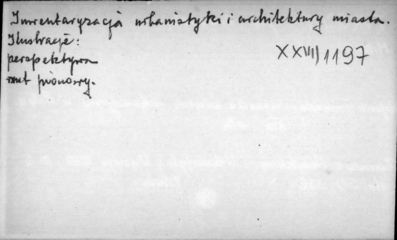 Inwentaryzacja urbanistyki i architektury miasta.
Ilustracje:
perspektywa
rzut pionowy.
XXVII/1197